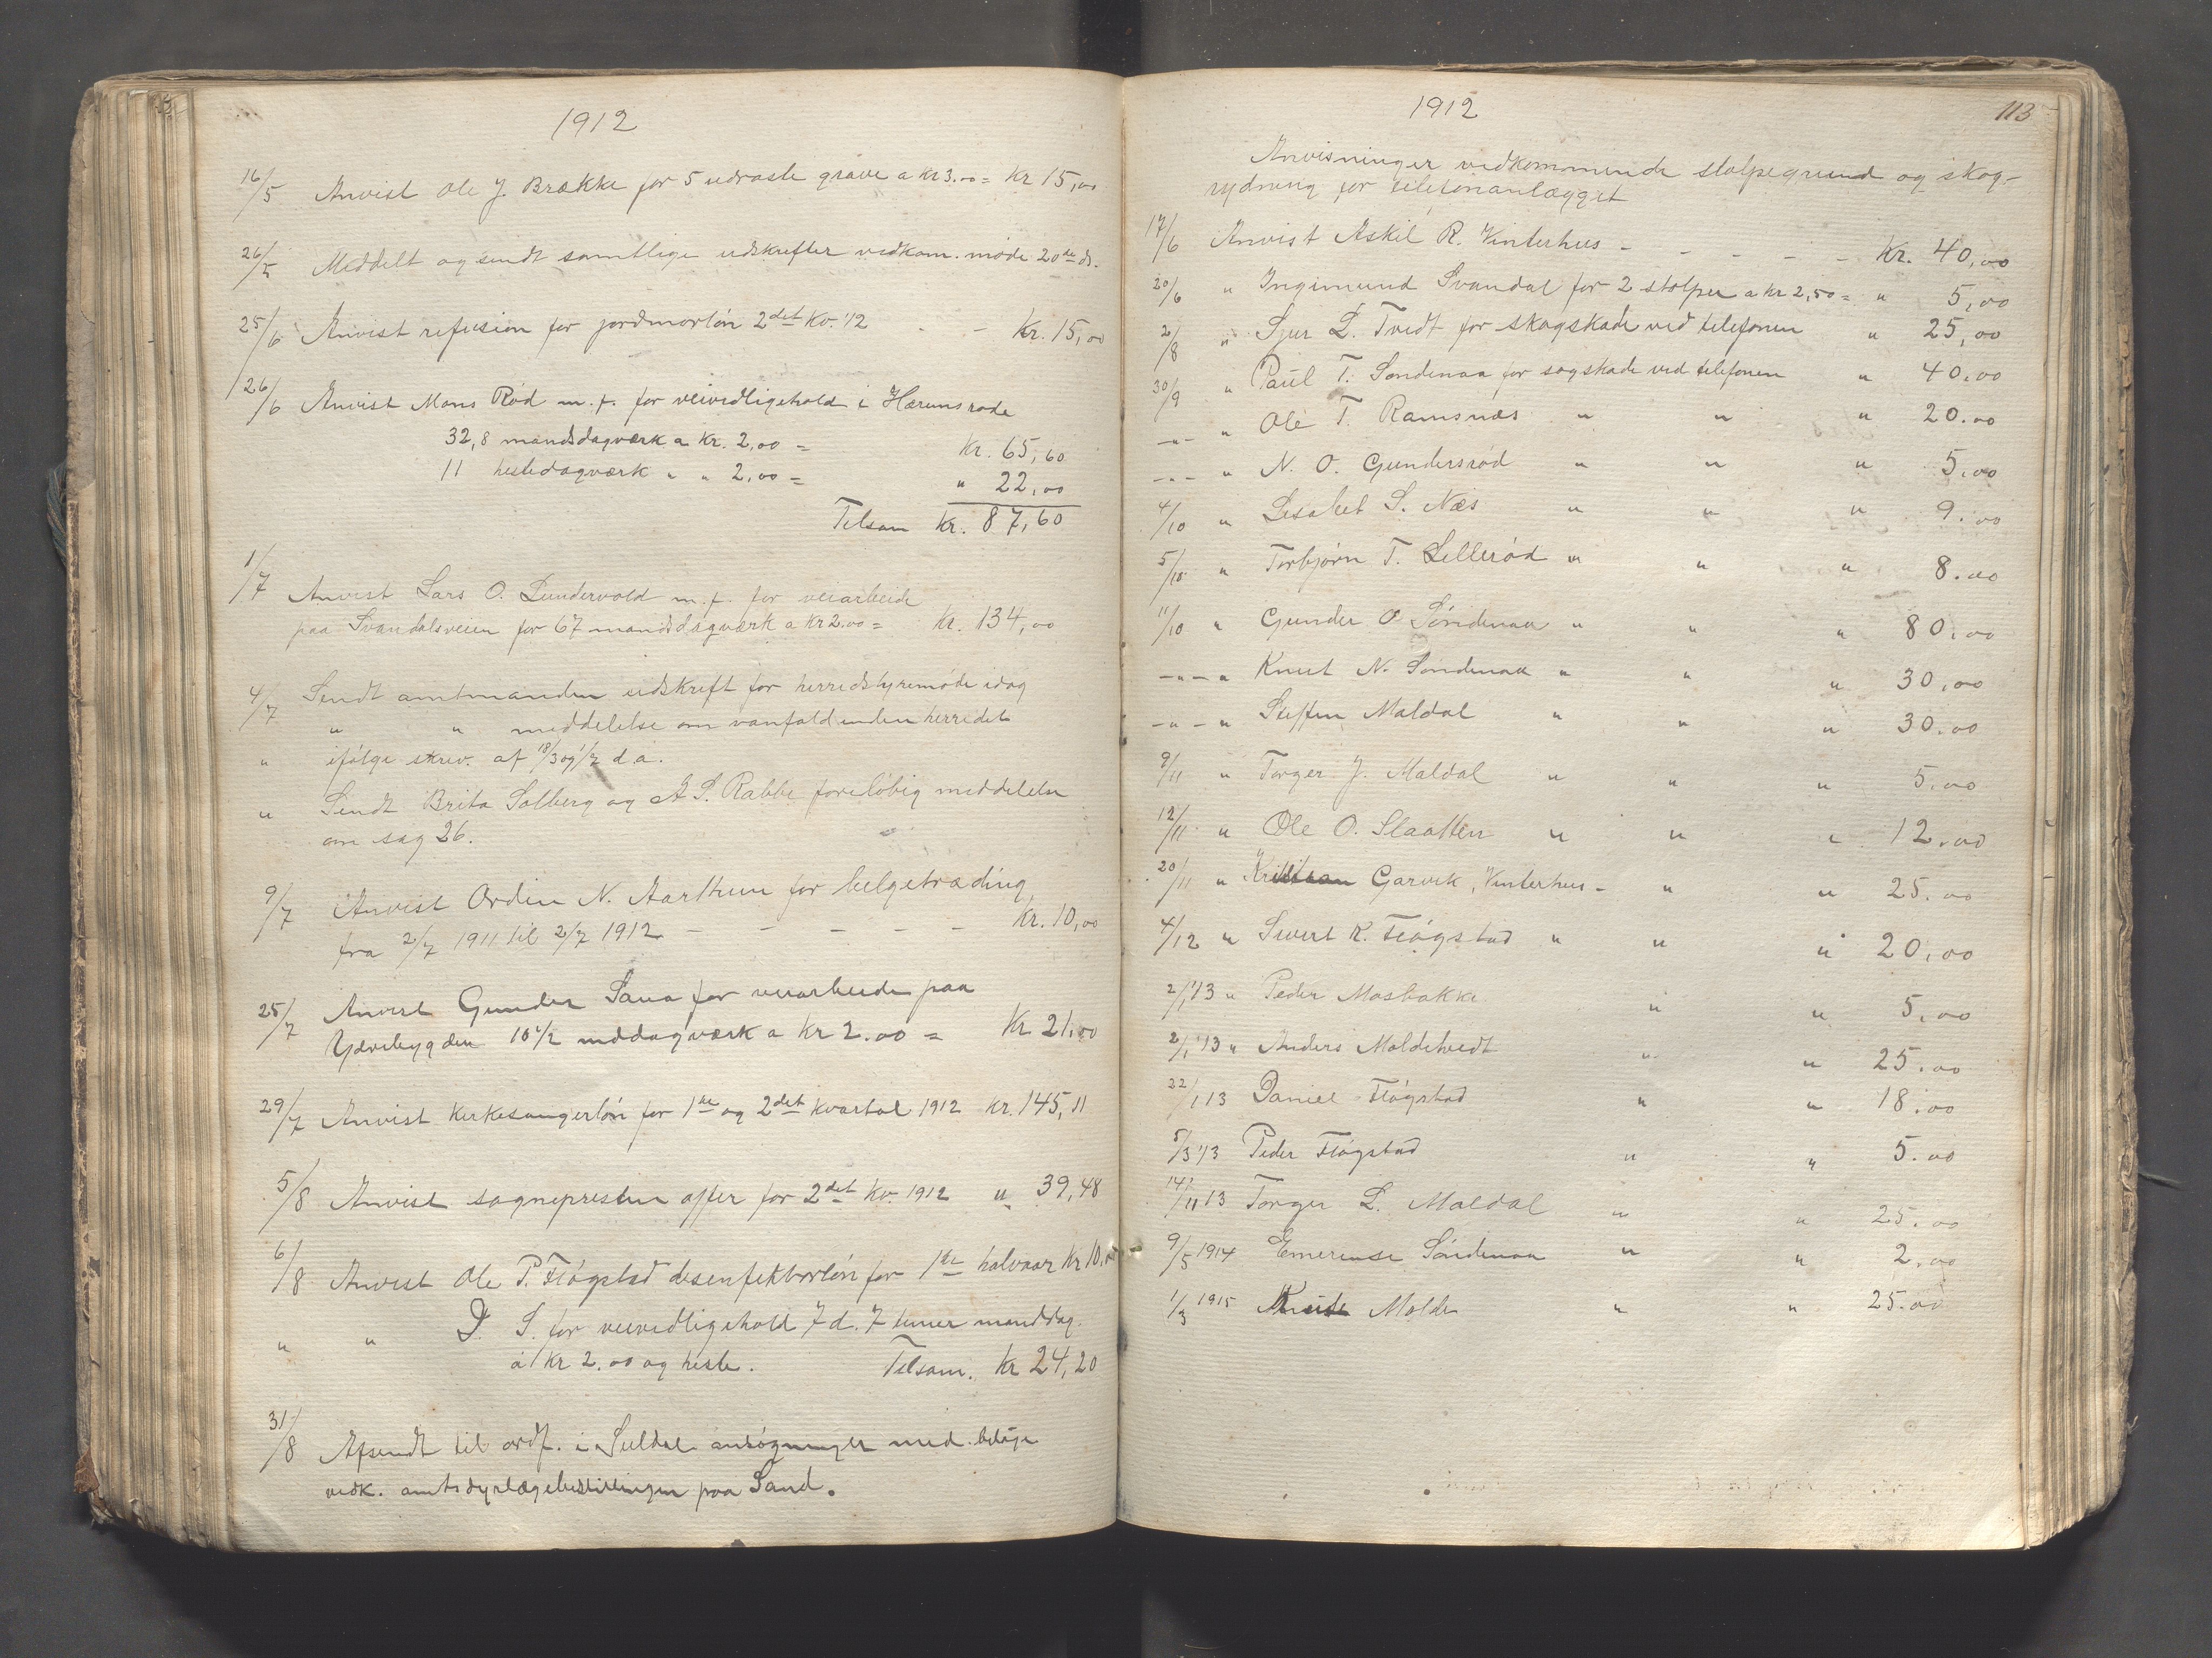 1912
16/5 Anvist Ole J. Brække for 5 udraste grave a kr 3.00 = Kr 15,00
26/5 Meddelt og sendt samtlige udskrefter vedkom. møde 20de ds.
25/6 Anvist refusion for jordmorløn 2det Kv. 12 - - Kr. 15,00
26/6 Anvist Mons Rød m. f. for veivedligehold i Hærens rode
32,8 mandsdagværk a Kr. 2,00 = Kr. 65,60
11 hestedagværk " " 2,00 = " 22,00
Tilsam Kr. 87,60
1/7 Anvist Lars O. Lundervold m. f. for veiarbeide
paa Svandalsveien for 67 mandsdagværk a Kr 2.00 = Kr. 134,00
4/7 Sendt amtmanden udskrift for herredstyremøde idag
" " meddelelse om vanfald inden herredet
" ifølge skriv. af 18/3 og 1/7 d.a.
" Sendt Brita Solberg og A S. Rabbe foreløbig meddelelse
om sag 26.
9/7 Anvist Ordin N. Aarthun for belgetræding
fra 2/7 1911 til 2/7 1912 - - - - - Kr. 10,00
25/7 Anvist Gunder Saua for veiarbeide paa
Ydrebygden 10 1/2 mddagværk a Kr 2.00 = Kr 21,00
29/7 Anvist Kirkesangerløn for 1ste og 2det kvartal 1912 Kr. 145,11
5/8 Anvist sognepresten offer for 2det Kv. 1912 " 39,48
6/8 Anvist Ole P. Fløgstad desenfektorløn for 1ste halvaar Kr 10,00
" " D. S. for veivedligehold 7 d. 7 timer manddag.
a Kr 2.00 og heste. Tilsam. Kr 24,20
31/8 Afsendt til ordf. i Suldal ansøgninger med bilage
vedk. amtsdyrlægebestillingen paa Sand.
1912 113
Anvisninger vedkommende stolpegrund og skog-
rydning for telefonanlægget
17/6 Anvist Askil R. Vinterhus - - - - - Kr. 40,00
20/6 " Ingimund Svandal for 2 stolper a kr 2,50 = " 5,00
2/8 " Sjur L. Tvedt for skogskade ved telefonen " 25,00
30/9 " Paul T. Søndenaa for sogskade ved telefonen " 40,00
-"- " Ole T. Ramsnæs " " " 20.00
-"- " N. O. Gundersrød " " " 5,00
4/10 " Lisabet S. Næs " " " 9.00
5/10 " Torbjørn T. Lillerød " " " 8.00
11/10 " Gunder O Søndenaa " " " 80.00
-"-" Knut N. Søndenaa " " " 30,00
-"-" Steffen Maldal " " " 30.00
9/11 " Torger J. Maldal " " " 5.00
12/11 " Ole O. Slaatten " " " 12.00
20/11 " Kristian Garvik, Vinterhus - " " 25.00
4/12 " Sivert K. Fløgstad " " " 20,00
2/1 13 " Peder Mosbakke " " 5,00
2/1 13 " Anders Moldetvedt " " 25.00
22/1 13 Daniel Fløgstad " " 18.00
5/3 13 Peder Fløgstad " " 5.00
14/11 13 Torger L. Maldal " " 25.00
9/5 1914 Emerense Søndenaa " " 2.00
1/3 1915 Knut Molde " " 25.00